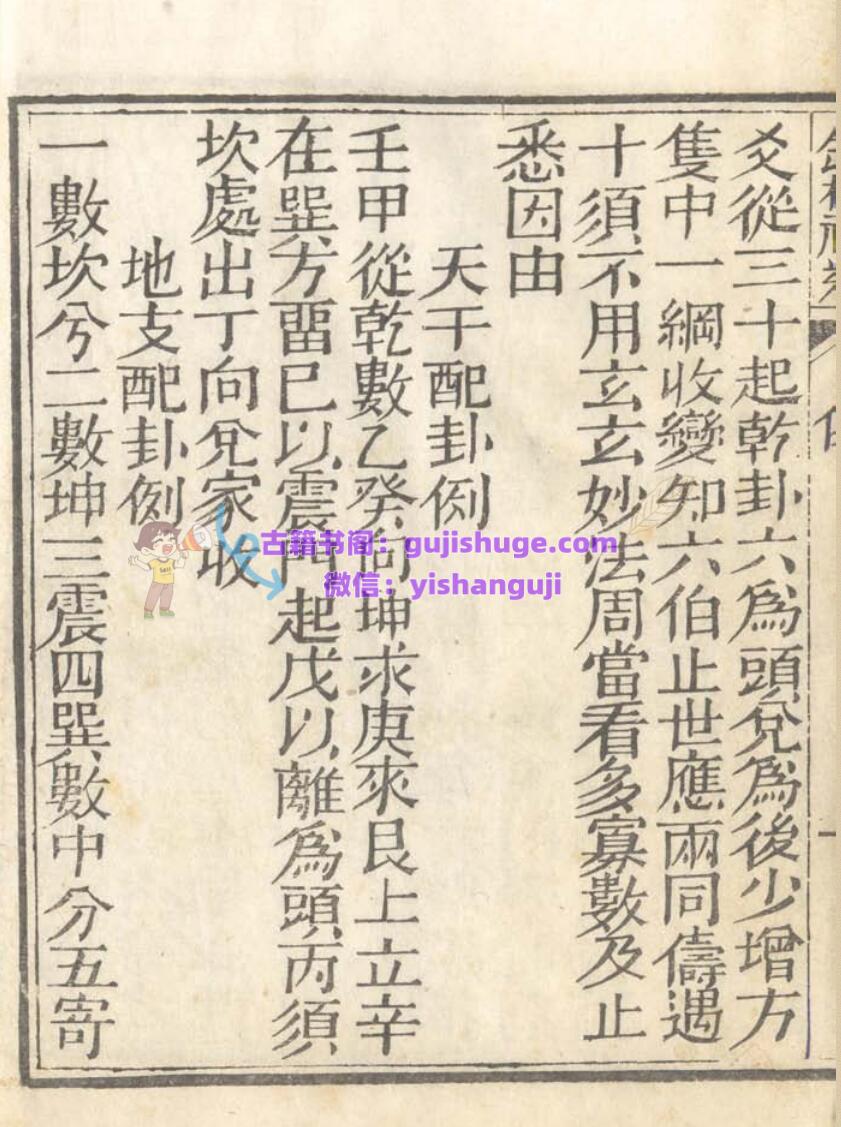 爻從三十起乾卦六爲頭兌爲後少增方
隻中一綱收變知六伯止世應兩同儔遇
十須不用玄玄妙法周當看多寡數及止
悉因由
天干配卦例
壬甲從乾數乙癸向坤求庚來艮上立辛
在巽方畱巳以震門起戊以離爲頭丙須
坎處出丁向兌家收
地支配卦例
一數坎兮二數坤三震四巽數中分五寄
古籍书阁：gujishuge.com
微信：yishanguji